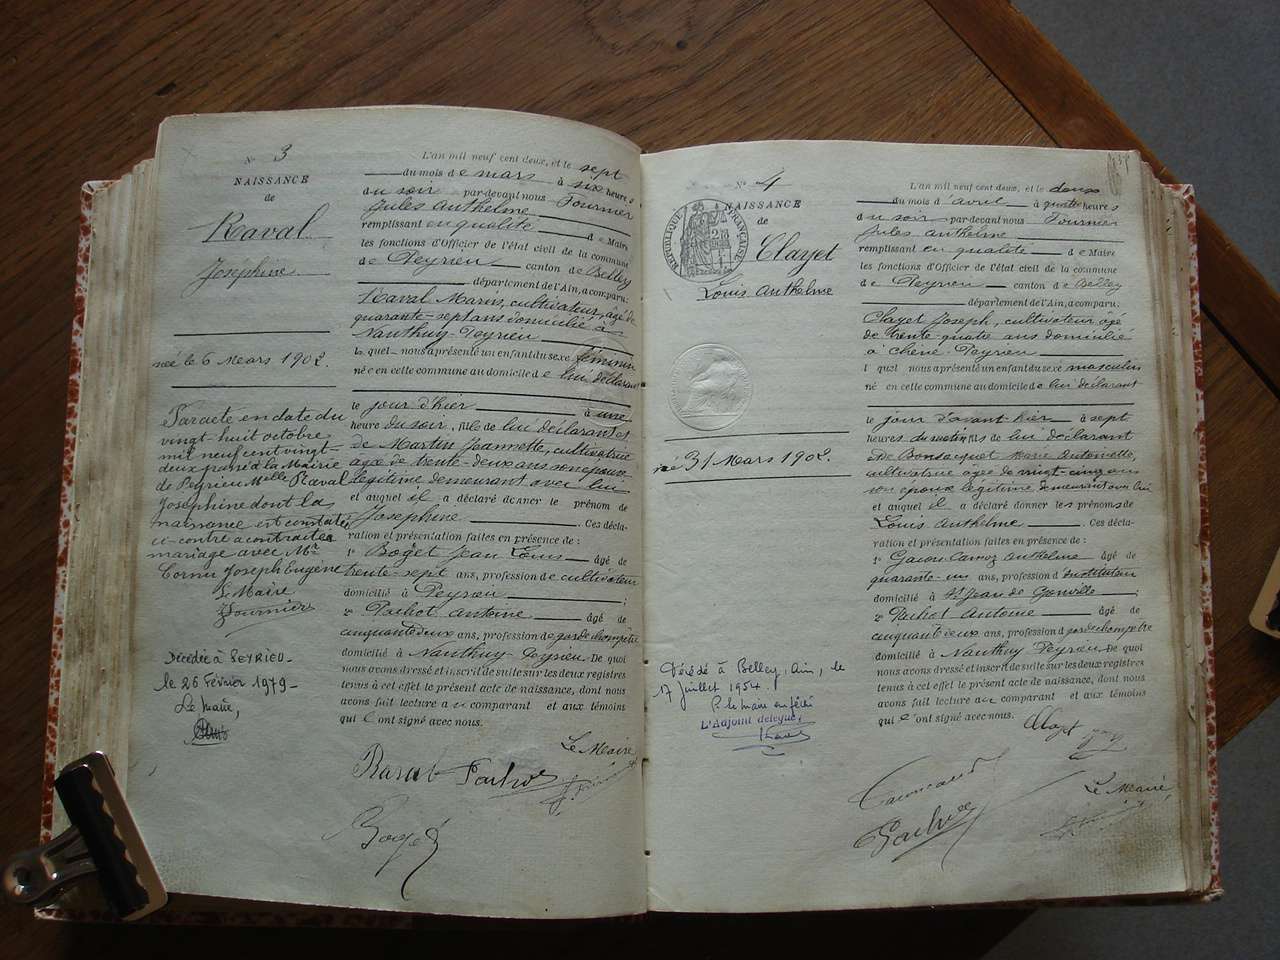 N° 3
NAISSANCE
de
Raval
Josephine
née le 6 Mars 1902.
Par acte en date du
vingt huit octobre
mil neuf cent vingt-
deux passé à la Mairie
de Peyrieu Melle Raval
Josephine dont la
naissance est constatée
ci-contre a contracté
mariage avec Mr
Cornu Joseph Eugène
Le Maire
Fournier
Décédée à PEYRIEU-
le 26 Février 1979-
Le Maire,
L'an mil neuf cent deux, et le sept
du mois de mars à six heures
du soir par-devant nous Fournier
Jules Anthelme
remplissant en qualité de Maire
les fonctions d'Officier de l'état civil de la commune
de Peyrieu canton de Belley
département de l'Ain, a comparu:
Raval Marius, cultivateur, âgé de
quarante-sept ans domicilié à
Nanthuy-Peyrieu
lequel nous a présenté un enfant du sexe féminin
née en cette commune au domicile de lui déclarant
le jour d'hier à une
heure du soir, fille de lui déclarant et
de Martin Jeannette, cultivatrice
âgée de trente-deux ans son épouse
légitime demeurant avec lui
et auquel il a déclaré donner le prénom de
Josephine. Ces décla-
ration et présentation faites en présence de:
1° Boget Jean Louis âgé de
trente-sept ans, profession de cultivateur
domicilié à Peyrieu;
2° Pachot Antoine âgé de
cinquante deux ans, profession de garde champêtre
domicilié à Nanthuy-Peyrieu. De quoi
nous avons dressé et inscrit de suite sur les deux registres
tenus à cet effet le présent acte de naissance, dont nous
avons fait lecture au comparant et aux témoins
qui l'ont signé avec nous.
Le Maire
Raval Pachot
Boget
N° 4
NAISSANCE
de
RÉPUBLIQUE FRANÇAISE
Clayet
Louis Anthelme
né 31 Mars 1902.
Décédé à Belley, Ain, le
17 Juillet 1954.
P. le maire empêché
L'Adjoint délégué:
L'an mil neuf cent deux, et le deux
du mois d'avril à quatre heures
du soir par-devant nous Fournier
Jules Anthelme
remplissant en qualité de Maire
les fonctions d'Officier de l'état civil de la commune
de Peyrieu canton de Belley
département de l'Ain, a comparu:
Clayet Joseph, cultivateur âgé
de trente-quatre ans domicilié
à Chêne-Peyrieu
lequel nous a présenté un enfant du sexe masculin
né en cette commune au domicile de lui déclarant
le jour d'avant hier à sept
heures du matin, fils de lui déclarant
de Marie Antoinette,
cultivatrice âgée de vingt-cinq ans
son épouse légitime demeurant avec lui
et auquel il a déclaré donner les prénoms de
Louis Anthelme. Ces décla-
ration et présentation faites en présence de:
1° Anthelme âgé de
quarante-un ans, profession d'instituteur
domicilié à St Jean de Gonville;
2° Pachot Antoine âgé de
cinquante deux ans, profession de garde champêtre
domicilié à Nanthuy Peyrieu. De quoi
nous avons dressé et inscrit de suite sur les deux registres
tenus à cet effet le présent acte de naissance, dont nous
avons fait lecture au comparant et aux témoins
qui l'ont signé avec nous.
Clayet
Le Maire,
Pachot